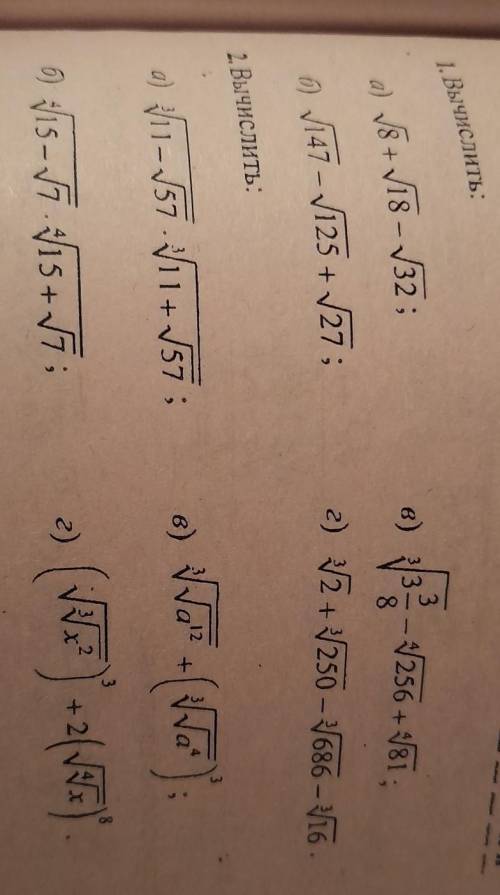 1. Вычислить:
а) √8 + √18 − √32 ;
в) ∛(3 3/8) − ∜256 + ∜81 ;
б) √147 − √125 + √27 ;
г) ∛2 + ∛250 − ∛686 − ∛16 .
2. Вычислить:
а) ∛(11 − √57) · ∛(11 + √57) ;
в) ∛(√(a¹²)) + (∛(√(a⁴)))³ ;
б) ∜(15 − √7) · ∜(15 + √7) ;
г) (√(∛(x²)))³ + 2(√(∜x))⁸ .